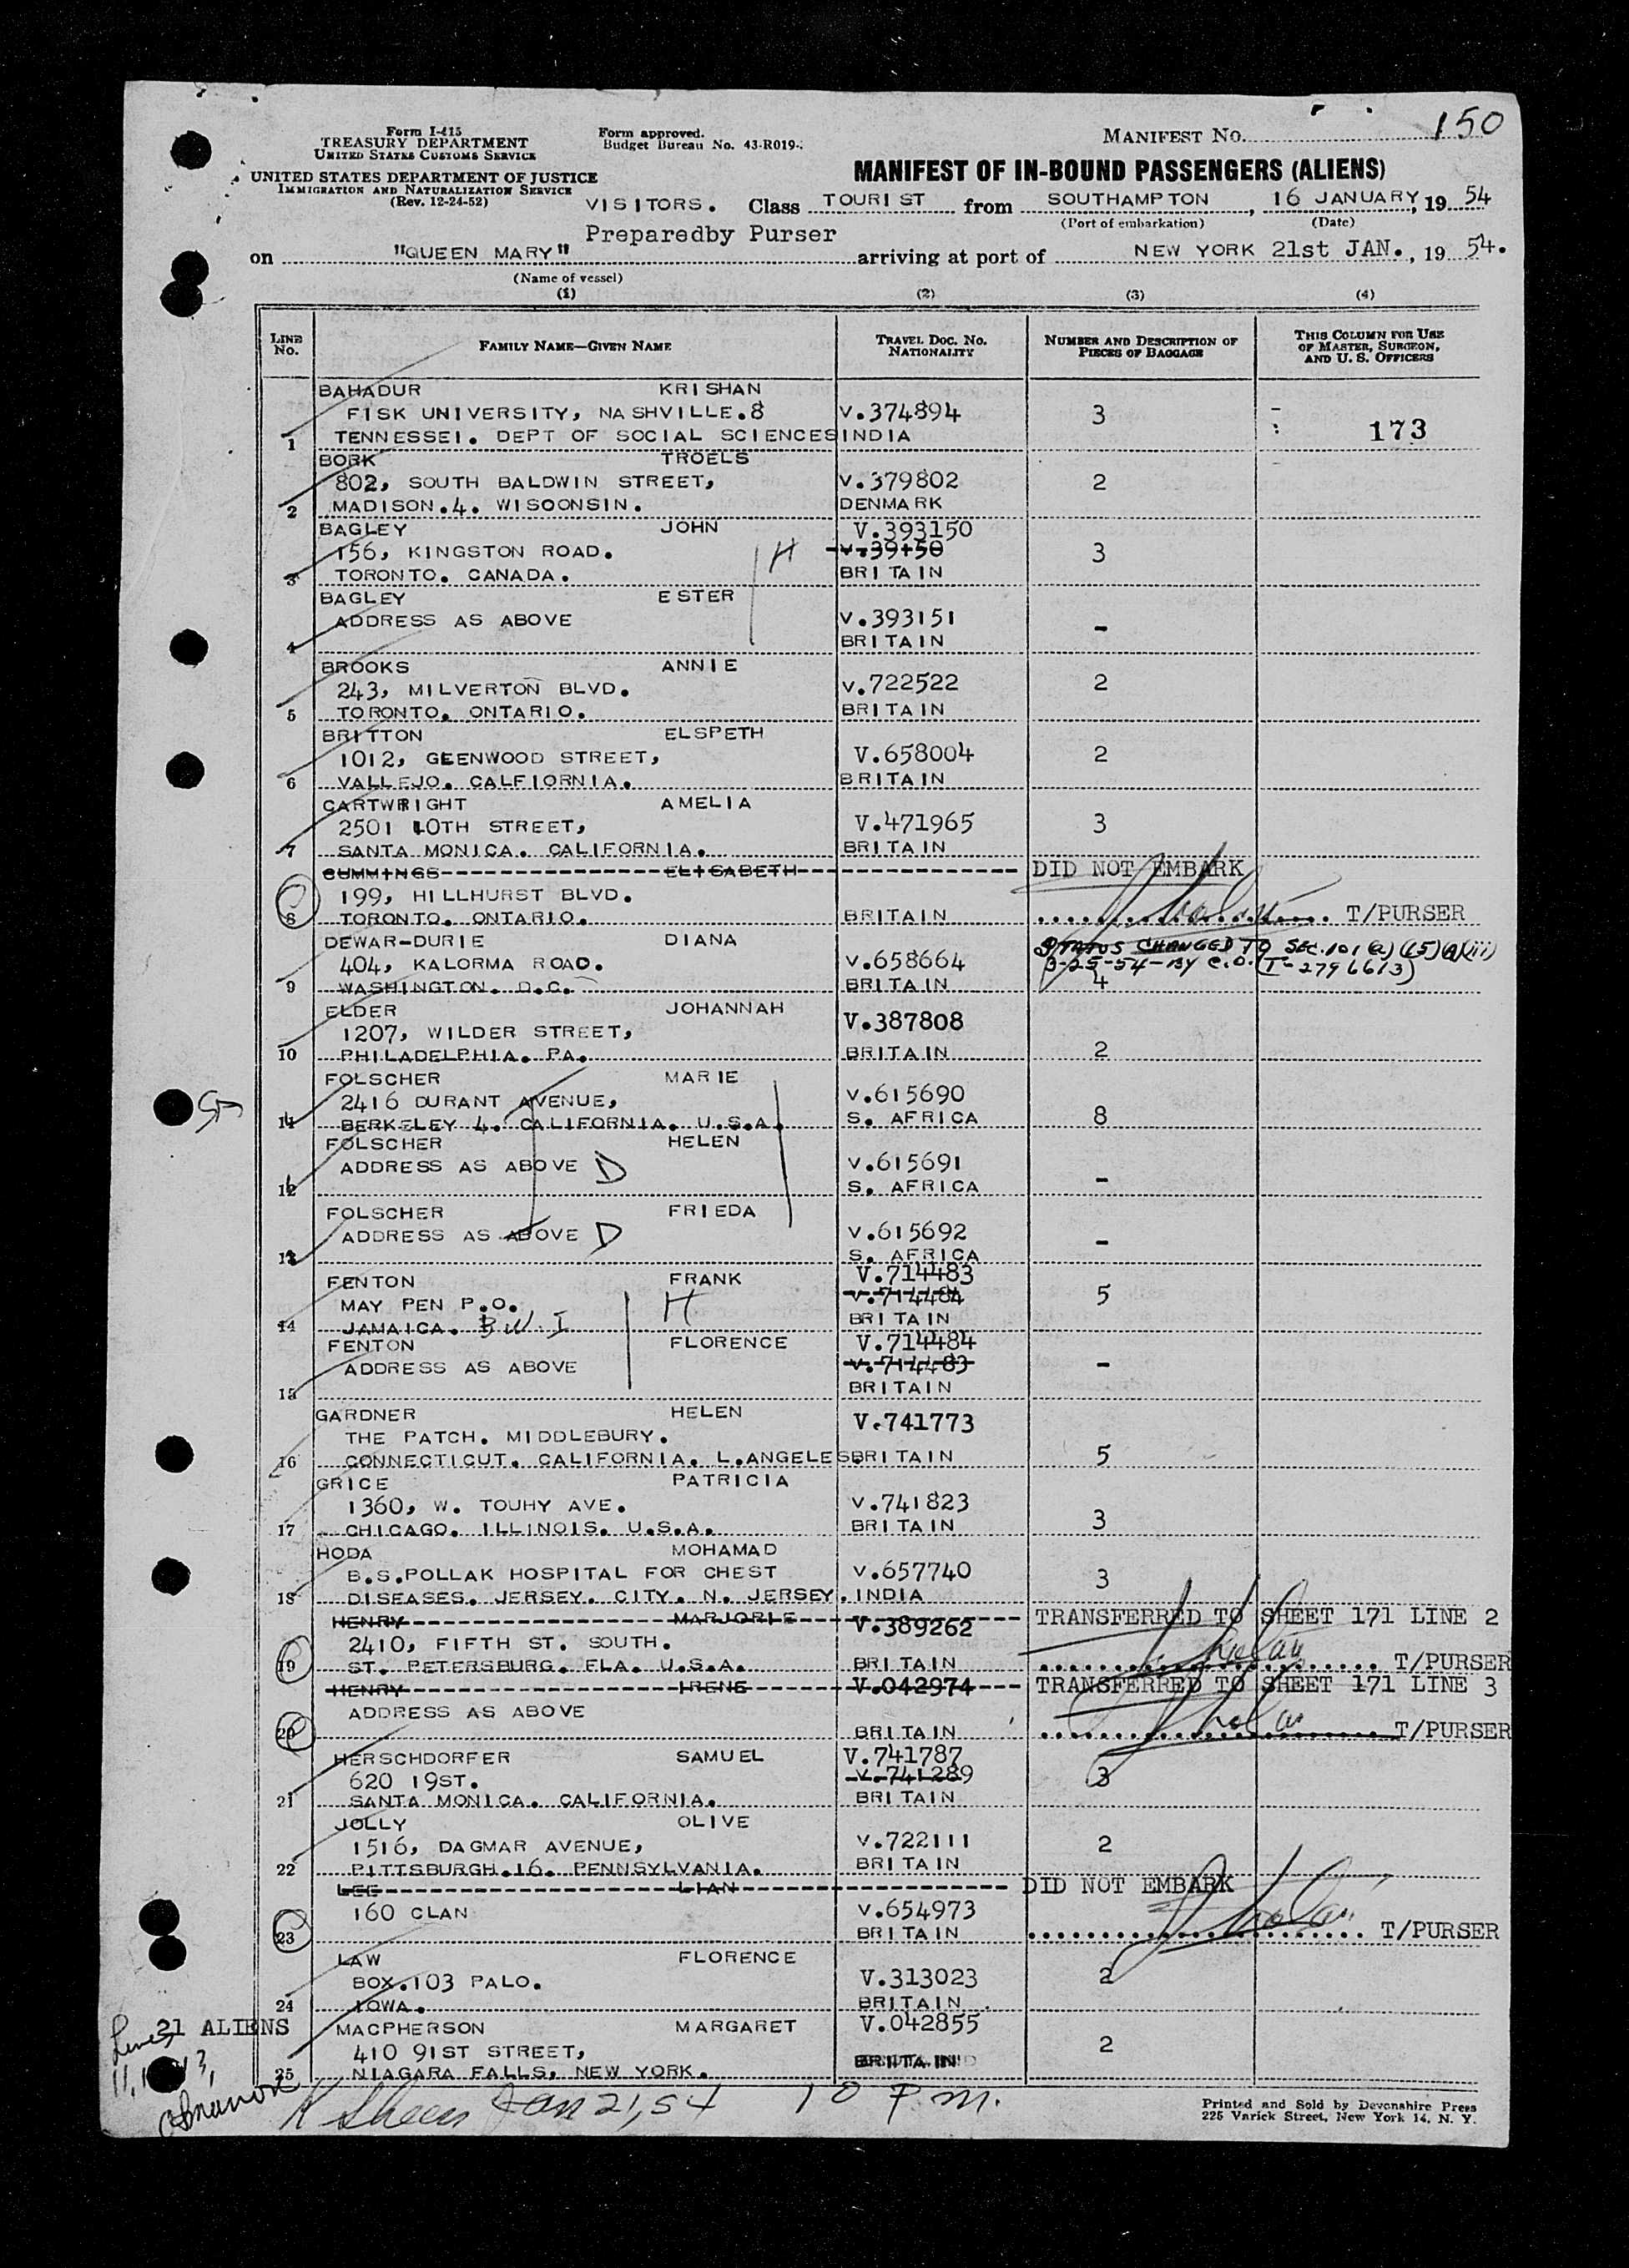 Form I-415
TREASURY DEPARTMENT
UNITED STATES CUSTOMS SERVICE
UNITED STATES DEPARTMENT OF JUSTICE
IMMIGRATION AND NATURALIZATION SERVICE
(Rev. 12-24-52)
Form approved.
Budget Bureau No. 43-R019-
MANIFEST NO. 150
MANIFEST OF IN-BOUND PASSENGERS (ALIENS)
VISITORS. Class TOURIST from SOUTHAMPTON, 16 JANUARY, 19 54
(Port of embarkation) (Date)
Preparedby Purser
on "QUEEN MARY" arriving at port of NEW YORK 21st JAN., 19 54.
(Name of vessel)
(1) (2) (3) (4)
LINE NO. FAMILY NAME—GIVEN NAME TRAVEL DOC. NO. NATIONALITY NUMBER AND DESCRIPTION OF PIECES OF BAGGAGE THIS COLUMN FOR USE OF MASTER, SURGEON, AND U. S. OFFICERS
BAHADUR KRISHAN
FISK UNIVERSITY, NASHVILLE.8 V.374894 3
1 TENNESSEI. DEPT OF SOCIAL SCIENCES INDIA 173
BORK TROELS
802, SOUTH BALDWIN STREET, V.379802 2
2 MADISON.4. WISOONSIN. DENMARK
BAGLEY JOHN V.393150
156, KINGSTON ROAD. H V.39150 3
3 TORONTO. CANADA. BRITAIN
BAGLEY ESTER
ADDRESS AS ABOVE V.393151 -
4 BRITAIN
BROOKS ANNIE
243, MILVERTON BLVD. V.722522 2
5 TORONTO. ONTARIO. BRITAIN
BRITTON ELSPETH
1012, GEENWOOD STREET, V.658004 2
6 VALLEJO. CALFIORNIA. BRITAIN
CARTWRIGHT AMELIA
2501 10TH STREET, V.471965 3
7 SANTA MONICA. CALIFORNIA. BRITAIN
CUMMINGS ELISABETH DID NOT EMBARK
199, HILLHURST BLVD.
8 TORONTO. ONTARIO. BRITAIN T/PURSER
DEWAR-DURIE DIANA STATUS CHANGED TO SEC. 101 (a) (15) (A)(iii)
404, KALORMA ROAD. V.658664 3-25-54-BY C.O. (T-2796613)
9 WASHINGTON. D.C. BRITAIN 4
ELDER JOHANNAH
1207, WILDER STREET, V.387808
10 PHILADELPHIA. PA. BRITAIN 2
FOLSCHER MARIE
2416 DURANT AVENUE, V.615690
11 BERKELEY 4. CALIFORNIA. U.S.A. S. AFRICA 8
FOLSCHER HELEN
ADDRESS AS ABOVE D V.615691
12 S. AFRICA -
FOLSCHER FRIEDA
ADDRESS AS ABOVE D V.615692 -
13 S. AFRICA
FENTON FRANK V.714483
MAY PEN P.O. H V.714484 5
14 JAMAICA. B.W.I BRITAIN
FENTON FLORENCE V.714484
ADDRESS AS ABOVE V.714483 -
15 BRITAIN
GARDNER HELEN V.741773
THE PATCH. MIDDLEBURY.
16 CONNECTICUT. CALIFORNIA. L.ANGELES BRITAIN 5
GRICE PATRICIA
1360, W. TOUHY AVE. V.741823
17 CHICAGO. ILLINOIS. U.S.A. BRITAIN 3
HODA MOHAMAD
B.S.POLLAK HOSPITAL FOR CHEST V.657740 3
18 DISEASES. JERSEY. CITY. N. JERSEY. INDIA
HENRY MARJORIE V.389262 TRANSFERRED TO SHEET 171 LINE 2
2410, FIFTH ST. SOUTH.
19 ST. PETERSBURG. FLA. U.S.A. BRITAIN T/PURSER
HENRY IRENE V.042974 TRANSFERRED TO SHEET 171 LINE 3
ADDRESS AS ABOVE
20 BRITAIN T/PURSER
HERSCHDORFER SAMUEL V.741787
620 19ST. V.741289 3
21 SANTA MONICA. CALIFORNIA. BRITAIN
JOLLY OLIVE
1516, DAGMAR AVENUE, V.722111 2
22 PITTSBURGH.16. PENNSYLVANIA. BRITAIN
LEE LIAN DID NOT EMBARK
160 CLAN V.654973
23 BRITAIN T/PURSER
LAW FLORENCE
BOX.103 PALO. V.313023 2
24 IOWA. BRITAIN
21 ALIENS MACPHERSON MARGARET V.042855
410 91ST STREET, 2
25 NIAGARA FALLS, NEW YORK. BRITAIN
Jan 21, 54 10 P.m.
Printed and Sold by Devonshire Press
225 Varick Street, New York 14, N. Y.